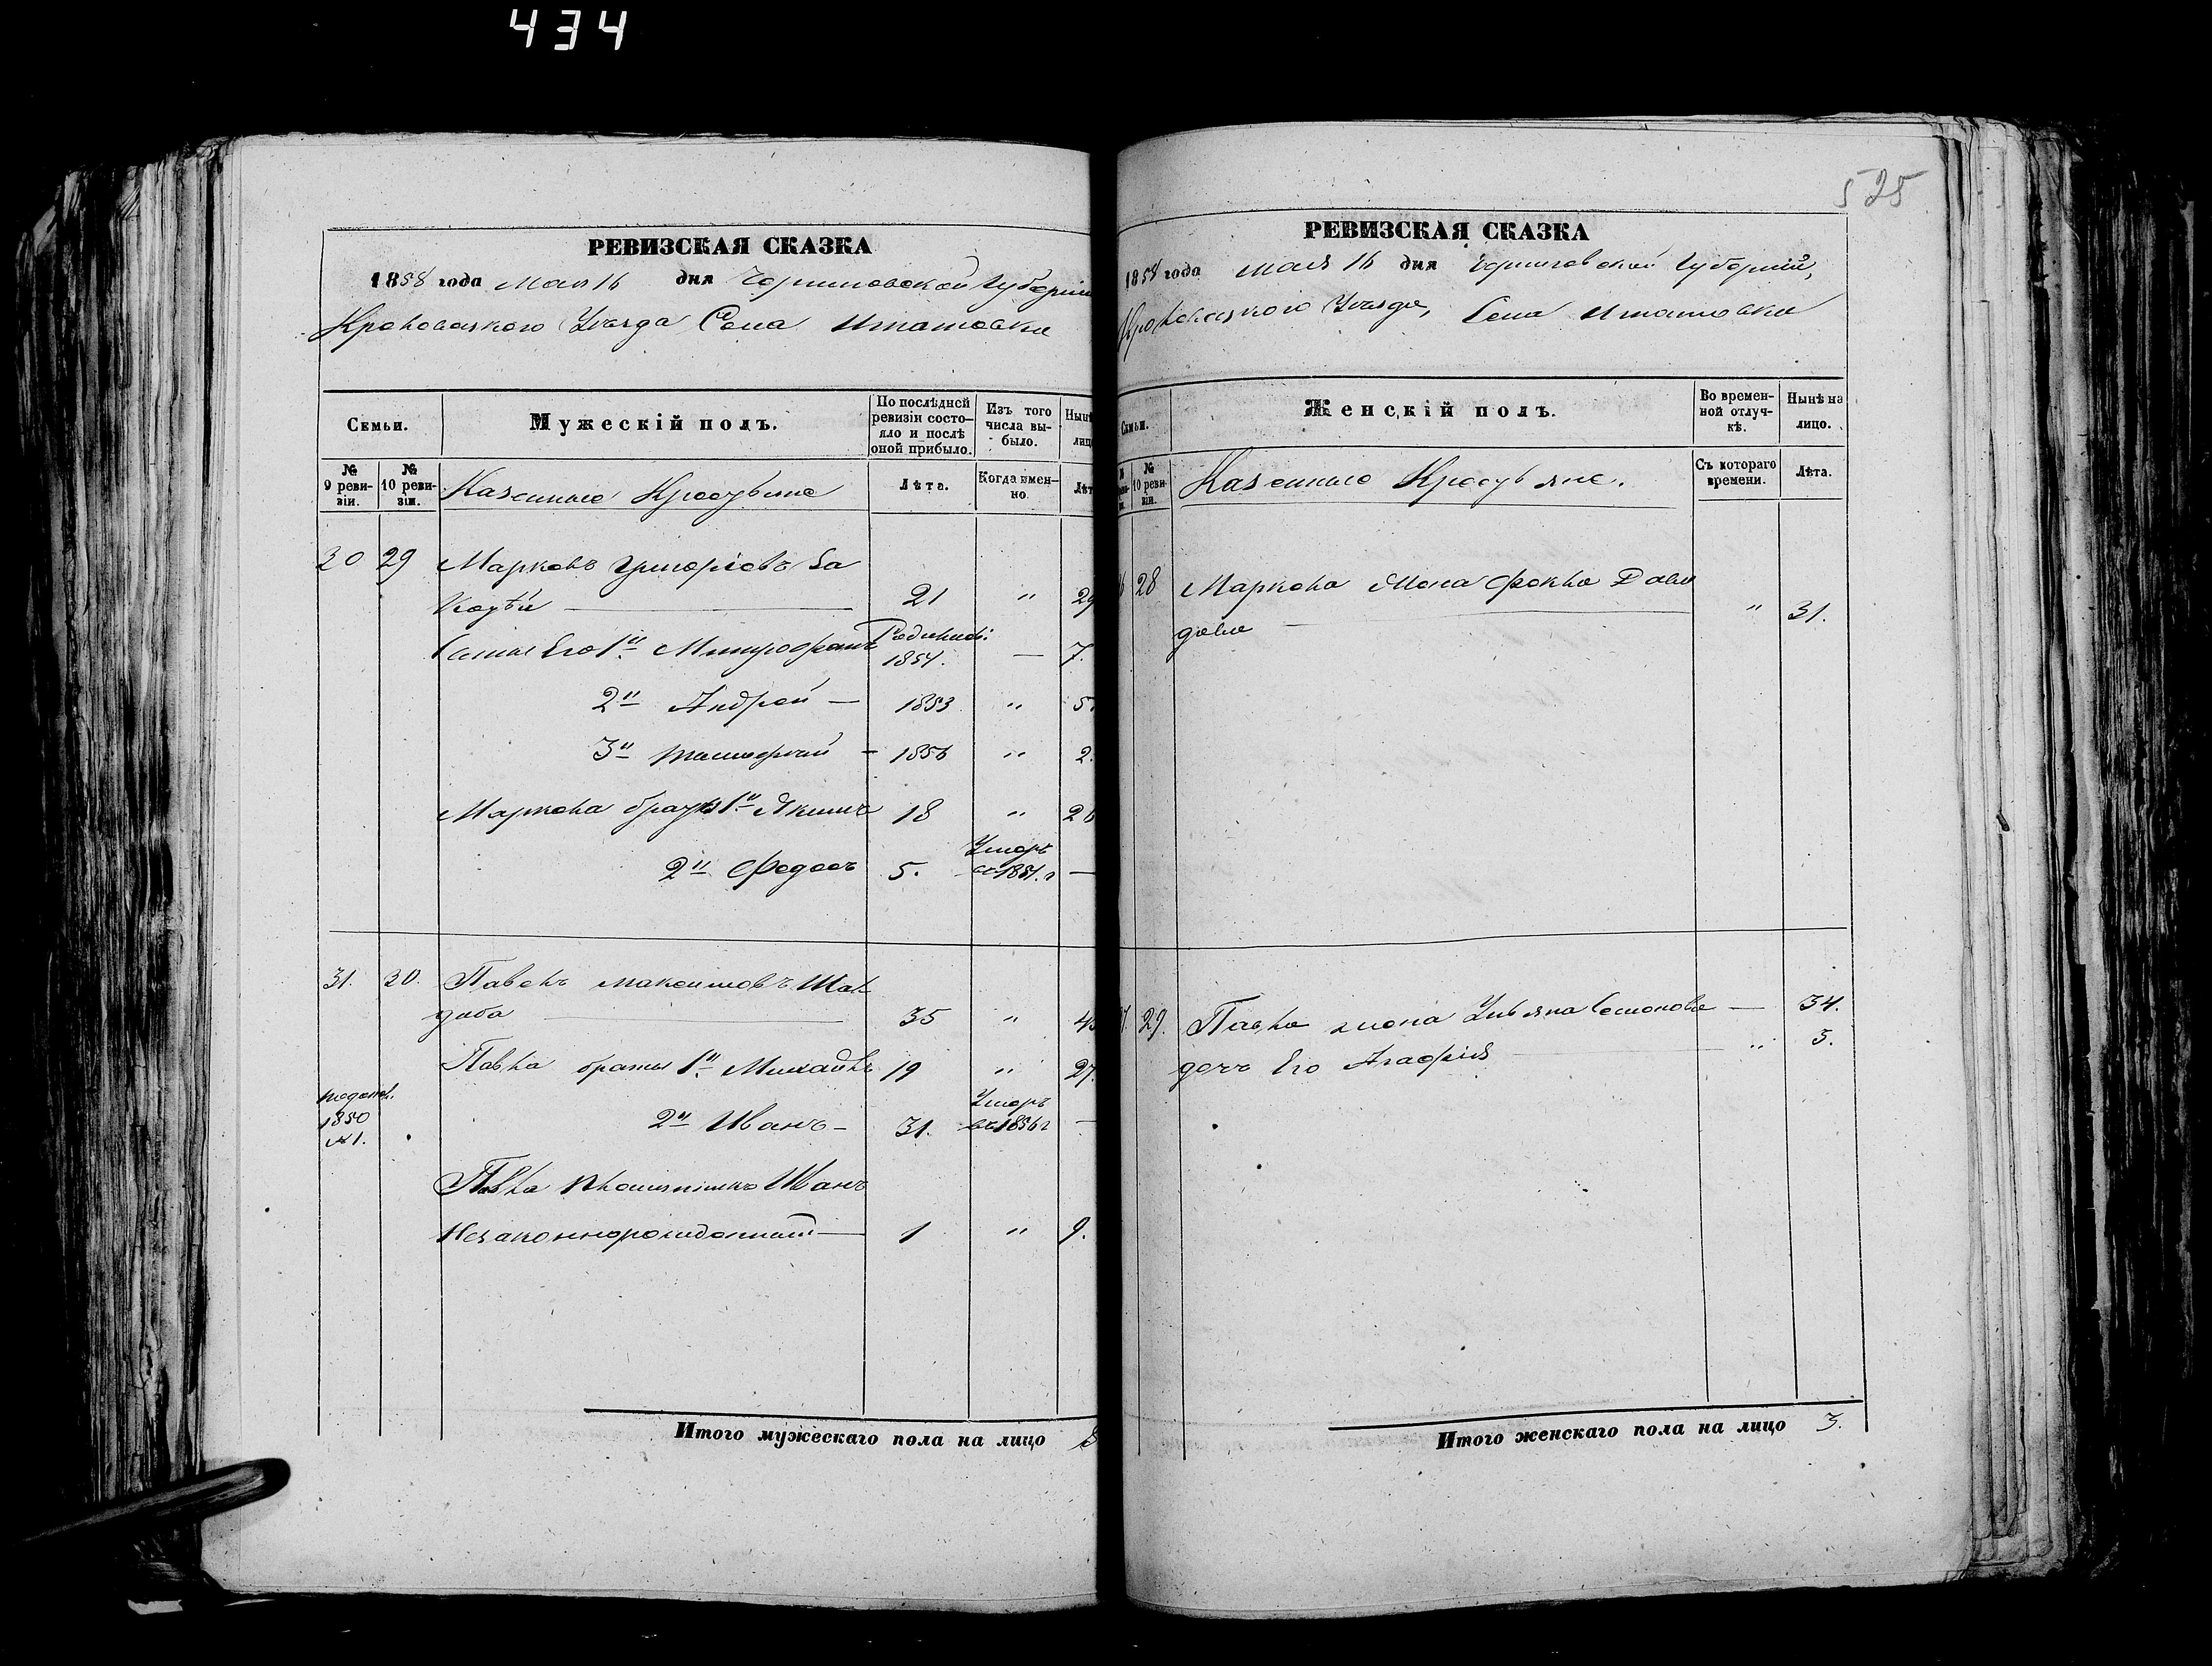 434
РЕВИЗСКАЯ СКАЗКА
1858 года Мая 16 дня Черниговской Губерніи
Кролевецкого Уезда Села Игнатовки
Семьи.
Мужескій полъ.
По послѣдней ревизіи состо-
яло и послѣ оной прибыло.
Изъ того числа вы-
было.
Нынѣ
лиц
№ 9 реви-
зіи.
№ 10 реви-
зіи.
Казенные Крестьяне
Лѣта.
Когда имен-
но.
Лѣт
30 29 Маркъ Григорьевъ
21 " 29
Сыны Его 1й Митрофанъ
1851. — 7.
2й Андрей — 1853 " 5.
3й Тимофей — 1856 " 2.
Марка братья 1й Якимъ 18 " 26
Умеръ
2й Федосъ 5. въ 1851. г —
31. 30. Павелъ Максимовъ
35 "
Павла братья 1й Михайло 19 " 27.
1850
№ 1.
Умеръ
2й Иванъ — 31. въ 1856 г —
Павла племянникъ Иванъ
Незаконнорожденный — 1 " 9.
Итого мужескаго пола на лицо 8
525
РЕВИЗСКАЯ СКАЗКА
1858 года Мая 16 дня Черниговской Губерніи,
Кролевецкого Уезда, Села Игнатовки
Семьи.
Женскій полъ.
Во времен-
ной отлуч-
кѣ.
Нынѣ на
лицо.
№ 10 реви-
зіи.
Казенные Крестьяне.
Съ котораго
времени.
Лѣта.
28 Марка жена Фекла Дави
дова — " 31.
29. Павла жена Ульяна Семенова — 34.
дочь Его Агафія — " 5.
Итого женскаго пола на лицо 3.